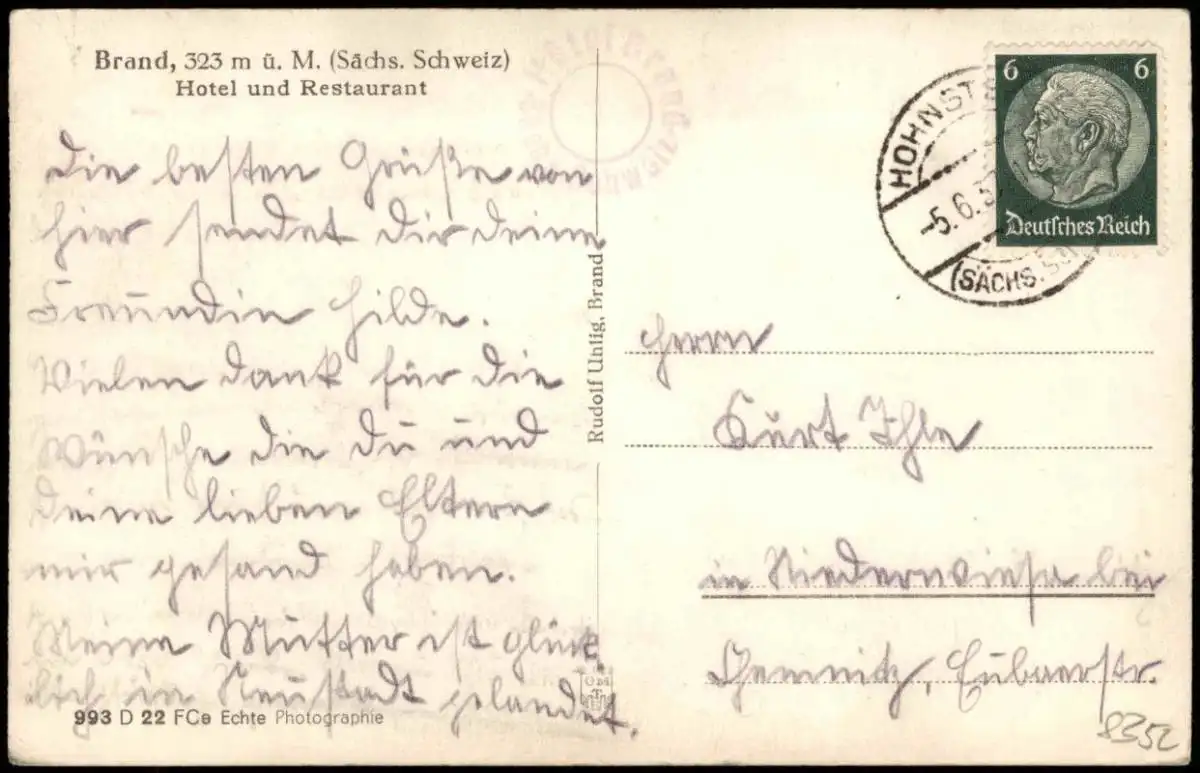 Brand, 323 m ü. M. (Sächs. Schweiz)
Hotel und Restaurant
Die besten Grüße von
hier sendet dir deine
Freundin Hilde.
Vielen dank für die
Wünsche die du und
deine lieben Eltern
mir gesand haben.
Meine Mutter ist glück
lich in Neustadt gelandet.
993 D 22 FCe Echte Photographie
Rudolf Uhlig, Brand
Hotel Brand
HOHNST
-5.6.3
(SÄCHS. SC
6 6
Deutsches Reich
Herrn
Kurt Ihle
in Niederwiesa bei
Chemnitz, Eubaerstr.
8352